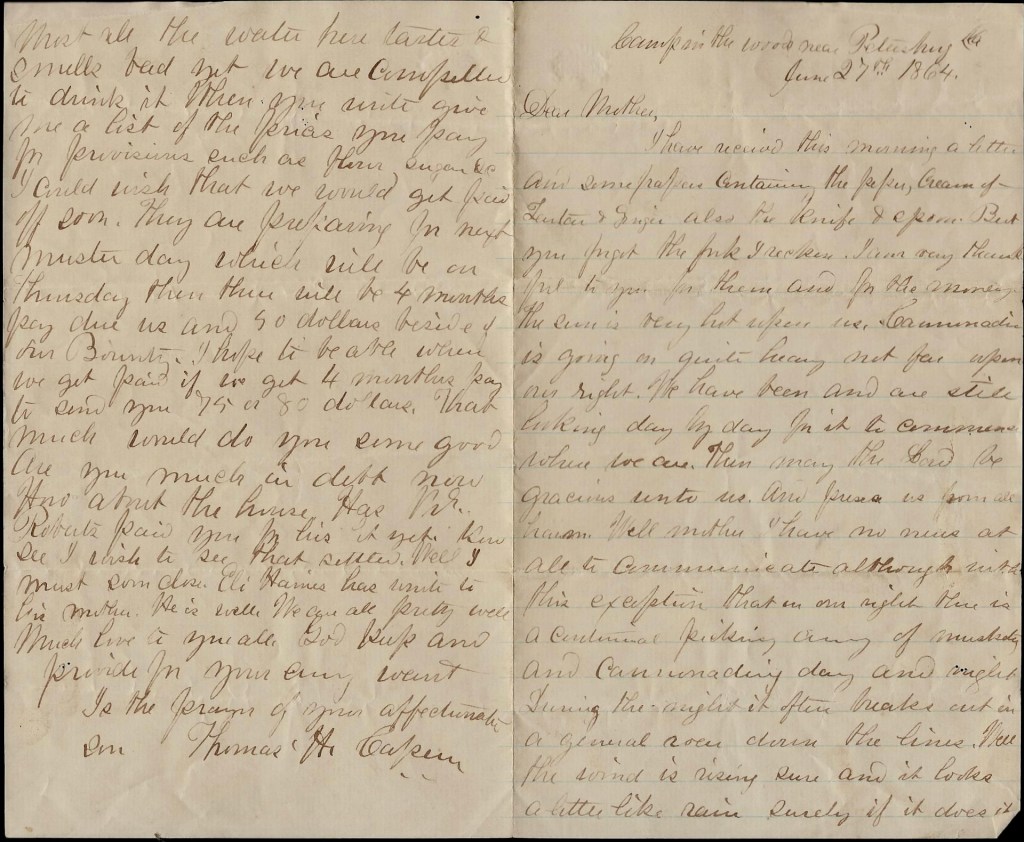 Camp in the woods near Petersburg Va
June 27th 1864.
Dear Mother,
I have received this morning a letter
and some papers containing the paper, Cream of
Tartar & Ginger also the knife & spoon. But
you forgot the fork I reckon. I am very thank
ful to you for them and for the money
the sun is very hot upon us. Cannonading
is going on quite heavy not far upon
our right. We have been and are still
looking day by day for it to commence
where we are. Then may the Lord be
gracious unto us. And preserve us from all
harm. Well mother I have no news at
all to communicate although with
this exception that on our right there is
a continual picking away of musketry
and Cannonading day and night
During the night it often breaks out in
a general roar down the lines. Well
the wind is rising sure and it looks
a little like rain surely if it does it
Most all the water here tastes &
smells bad yet we are compelled
to drink it When you write give
me a list of the prices you pay
for provisions such as flour, sugar &c
I could wish that we would get paid
off soon. They are prepairing for next
muster day which will be on
Thursday then there will be 4 months
pay due us and 50 dollars beside of
our Bounty. I hope to be able when
we get paid if we get 4 months pay
to send you 75 or 80 dollars. That
much would do you some good
Are you much in debt now
How about the house Has
Roberts paid you for his it yet. You
see I wish to see that settled. Well I
must soon close. Eli Haines has wrote to
his mother. He is well. We are all pretty well
Much love to you all. God keep and
provide for your every want
Is the prayer of your affectionate
son Thomas H. Capern